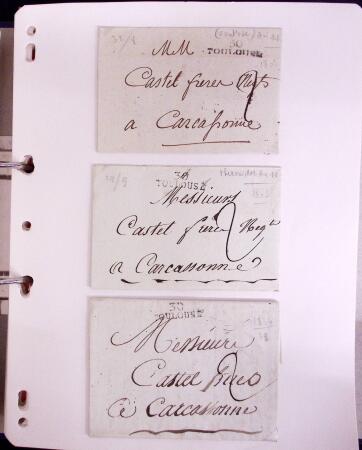 30
TOULOUSE
MM
Castel freres Negts
a Carcassonne
30
TOULOUSE
Messieurs
Castel freres Negts
a Carcassonne
30
TOULOUSE
Messieurs
Castel freres
a Carcassonne